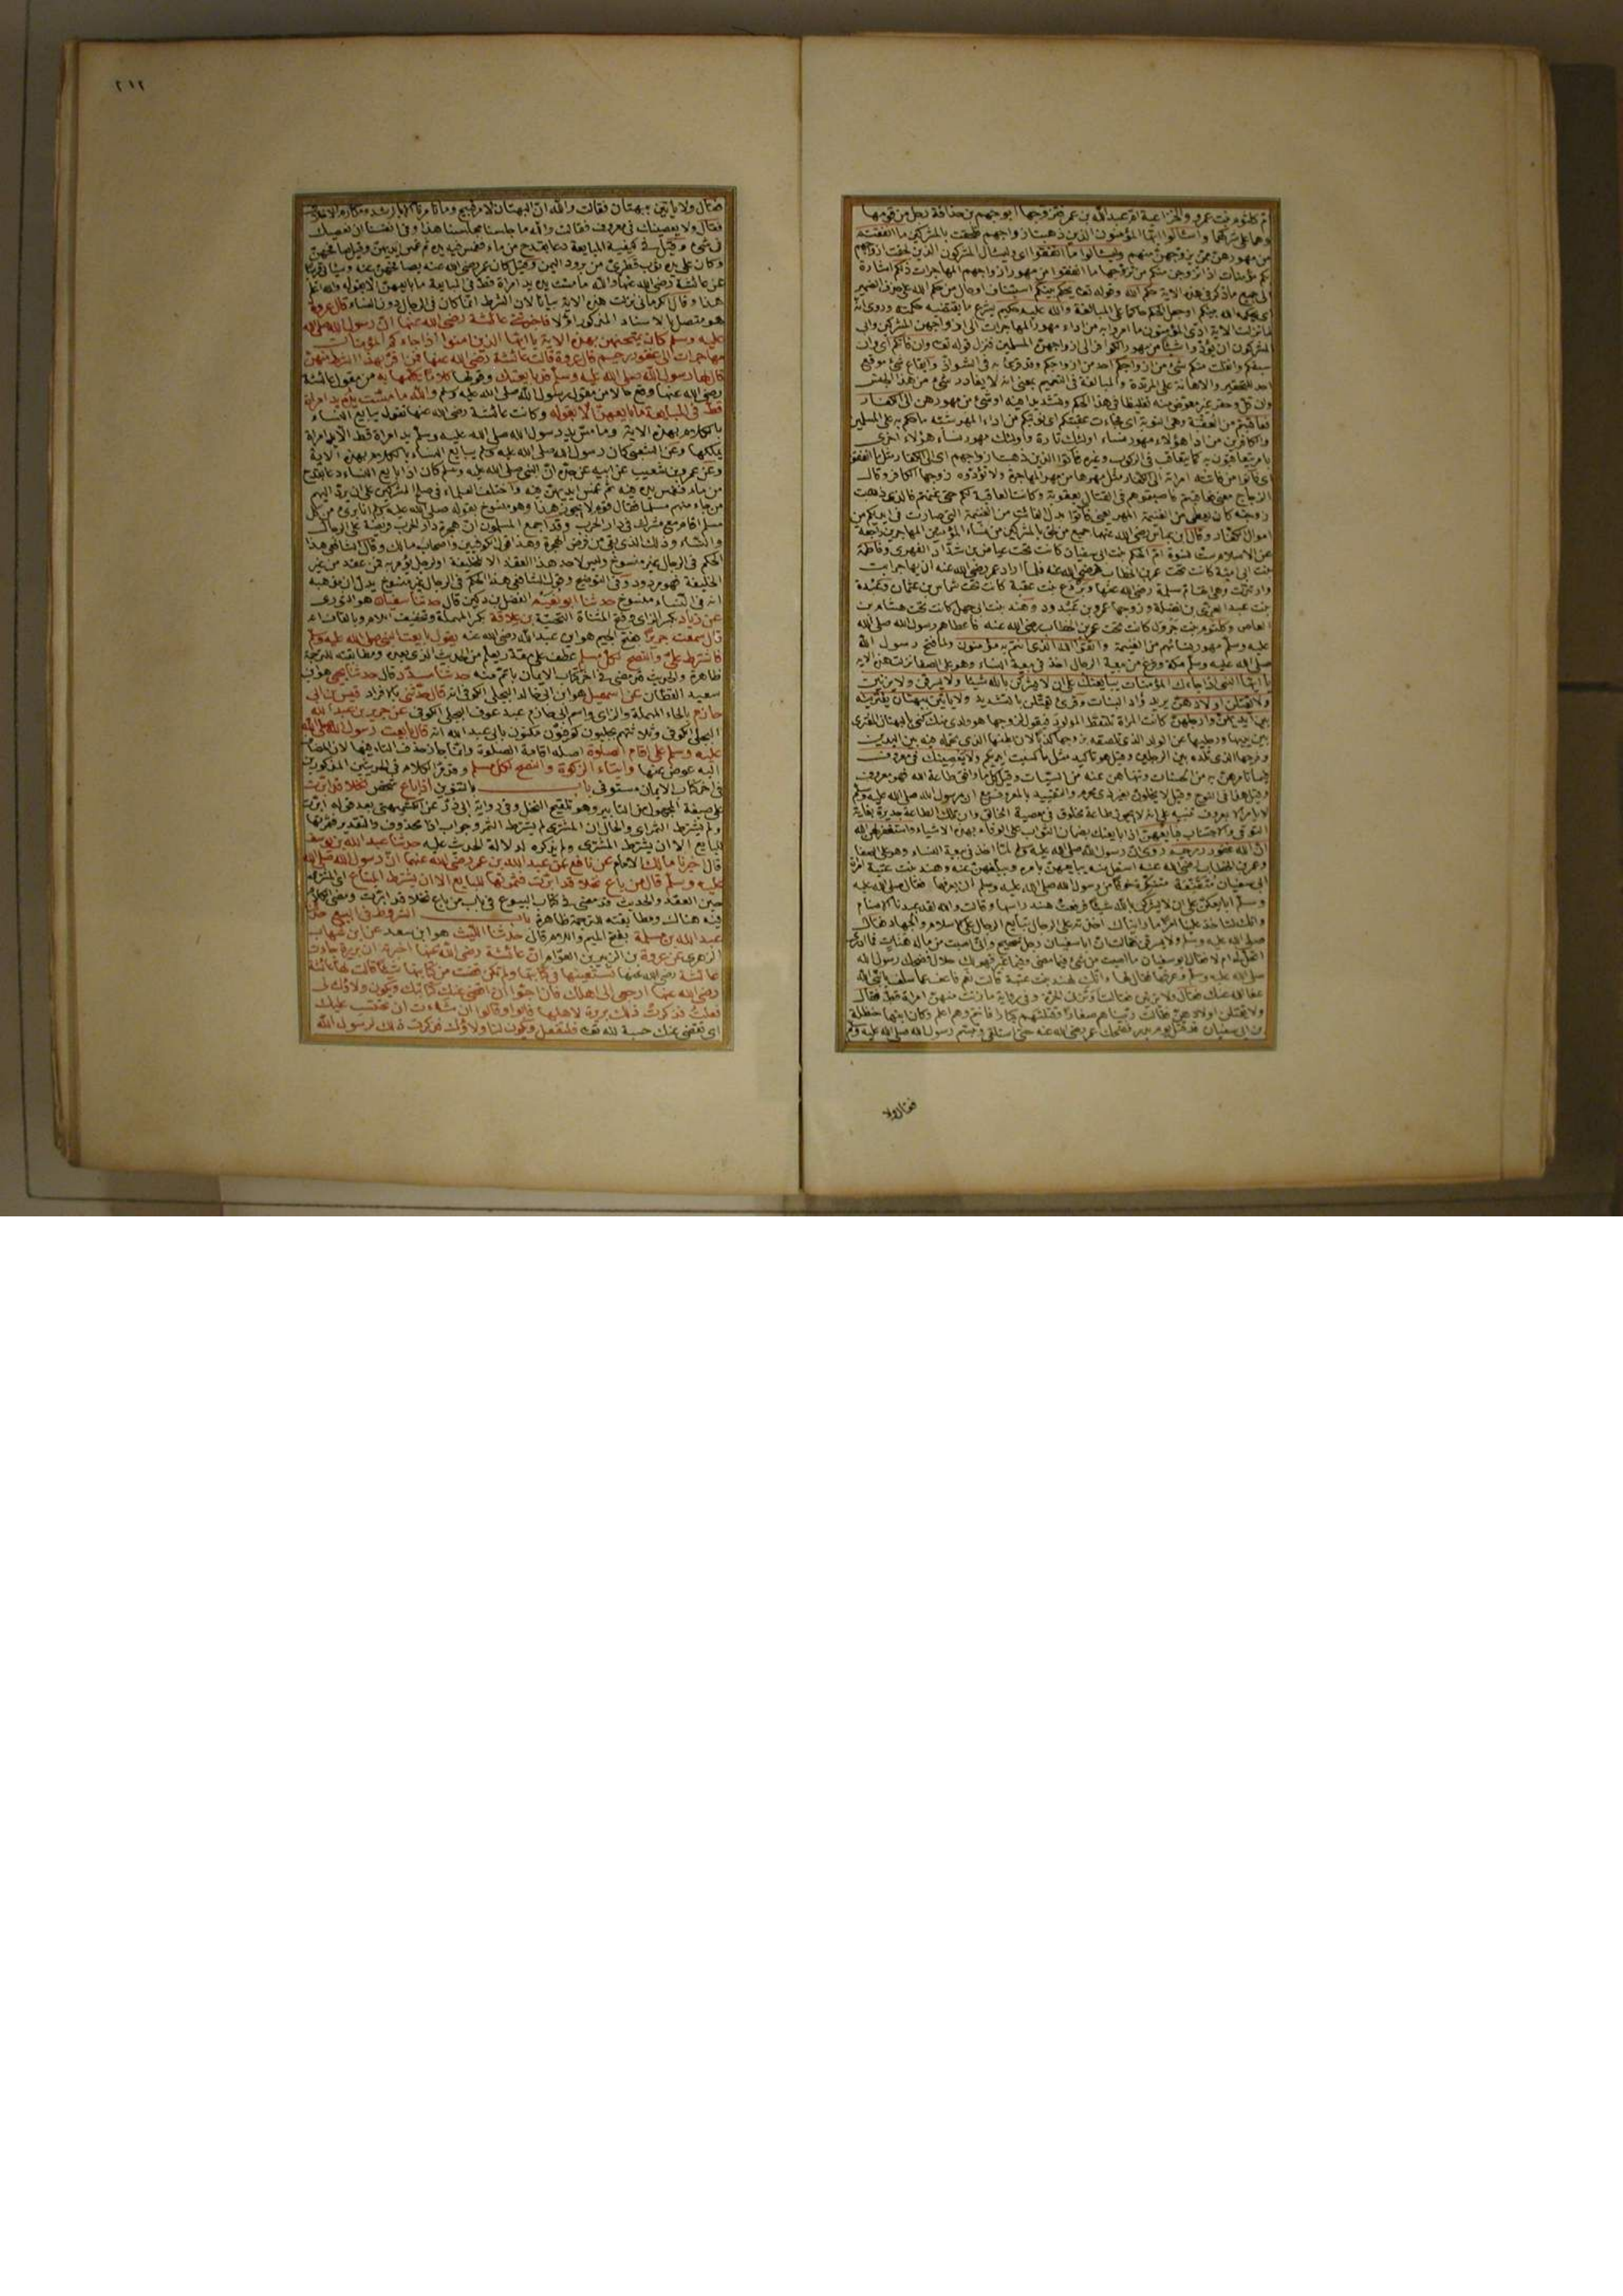 ام كلثوم بنت عمرو الخزاعية ام عبد الله بن عمر فتزوجها ابو جهم بن حذافة رجل من قومها
وهما على شركهما واسئلوا ايها المؤمنون الذين ذهبت ازواجهم فلحقت بالمشركين ما انفقتم
من مهورهن ممن تزوجهن منهم وليسئلوا ما انفقوا اى وليسئال المشركون الذين لحقت ازواجهم
بكم مؤمنات اذا تزوجن منكم من تزوجها ما انفقوا من مهور ازواجهم المهاجرات ذلكم اشارة
الى جميع ما ذكر فى هذه الاية حكم الله وقوله تعالى يحكم بينكم استيناف او حال من حكم الله على حذف الضمير
اى يحكمه الله بينكم او جعل الحكم حاكما على المبالغة والله عليم حكيم يشرع ما يقتضيه حكمته وروى انه
لما نزلت الاية ادى المؤمنون ما امروا به من اداء مهور المهاجرات الى ازواجهن المشركين وابى
المشركون ان يؤدوا شيئا من مهور الكوافر الى ازواجهن المسلمين فنزل قوله تعالى وان فاتكم اى وان
سبقكم وانفلت منكم شئ من ازواجكم احد من ازواجكم وقد قرئ به فى الشواذ وايقاع شئ موقع
احد للتحقير والاهانة على المرتدة والمبالغة فى التعميم بمعنى انه لا يغادر شئ من هذا الجنس
وان قل وحقر غير معوض منه تغليظا فى هذا الحكم وتشديدا فيه او شئ من مهورهن الى الكفار
فعاقبتم من العقبة وهى النوبة اى فجاءت عقبتكم اى نوبتكم من اداء المهر شبه ما حكم به على المسلمين
والكافرين من اداء هؤلاء مهور نساء اولئك تارة واولئك مهور نساء هؤلاء اخرى
بامر يتعاقبون به كما يتعاقب فى الركوب وغيره فاتوا الذين ذهبت ازواجهم اى الى الكفار مثل ما انفقوا
اى فاتوا من فاتته امراته الى الكفار مثل مهرها من مهر المهاجرة ولا تؤتوه زوجها الكافر وقال
الزجاج معنى فعاقبتم فاصبتموهم فى القتال بعقوبة وكانت العاقبة لكم حتى غنمتم فالذى ذهبت
زوجته كان يعطى من الغنيمة المهر يعنى فاتوا بدل الفائت من الغنيمة التى صارت فى ايديكم من
اموال الكفار وقال ابن عباس رضى الله عنهما جميع من لحق بالمشركين من نساء المؤمنين المهاجرين راجعة
عن الاسلام ست نسوة ام الحكم بنت ابى سفيان كانت تحت عياض بن شداد الفهرى وفاطمة
بنت ابى امية كانت تحت عمر بن الخطاب رضى الله عنه فلما اراد عمر رضى الله عنه ان يهاجر ابت
وارتدت وهى اخت ام سلمة رضى الله عنها وبروع بنت عقبة كانت تحت شماس بن عثمان وعبدة
بنت عبد العزى بن نضلة وزوجها عمرو بن عبدود وهند بنت ابى جهل كانت تحت هشام بن
العاص وكلثوم بنت جرول كانت تحت عمر بن الخطاب رضى الله عنه فاعطاهم رسول الله صلى الله
عليه وسلم مهور نسائهم من الغنيمة واتقوا الله الذى انتم به مؤمنون ولما فتح رسول الله
صلى الله عليه وسلم مكة وفرغ من بيعة الرجال اخذ فى بيعة النساء وهو على الصفا نزلت هذه الاية
يا ايها النبى اذا جاءك المؤمنات يبايعنك على ان لا يشركن بالله شيئا ولا يسرقن ولا يزنين
ولا يقتلن اولادهن يريد وأد البنات وقرئ يقتلن بالتشديد ولا ياتين ببهتان يفترينه
بين ايديهن وارجلهن كانت المراة تلتقط المولود فيقول لزوجها هو ولدى منك كنى بالبهتان المفترى
بين يديها ورجليها عن الولد الذى تلصقه بزوجها كذبا لان بطنها الذى تحمله فيه بين اليدين
وفرجها الذى تلده بين الرجلين وقيل هو تاكيد مثل ما كسبت ايديكم ولا يعصينك فى معروف
فيما تامرهن به من الحسنات وتنهاهن عنه من السيئات وقيل كل ما وافق طاعة الله فهو معروف
وقيل هذا فى النوح وقيل لا يخلون بغير ذى محرم والتقييد بالمعروف مع ان رسول الله صلى الله عليه وسلم
لا يامر الا بمعروف تنبيه على انه لا يجوز طاعة مخلوق فى معصية الخالق وان تلك الطاعة جديرة بغاية
التوقى والاجتناب فبايعهن اذا بايعنك بضمان الثواب على الوفاء بهذه الاشياء واستغفر لهن الله
ان الله غفور رحيم روى ان رسول الله صلى الله عليه وسلم لما اخذ فى بيعة النساء وهو على الصفا
وعمر بن الخطاب رضى الله عنه اسفل منه يبايعهن بامره ويبلغهن عنه وهند بنت عتبة امراة
ابى سفيان متقنعة متنكرة خوفا من رسول الله صلى الله عليه وسلم ان يعرفها فقال صلى الله عليه
وسلم ابايعكن على ان لا يشركن بالله شيئا فرفعت هند راسها وقالت والله لقد عبدنا الاصنام
وانك لتاخذ علينا امرا ما رايناك اخذته على الرجال تبايع الرجال على الاسلام والجهاد فقال
صلى الله عليه وسلم ولا يسرقن فقالت ان ابا سفيان رجل شحيح وانى اصبت من ماله هنات فما ادرى
اتحل لى ام لا فقال ابو سفيان ما اصبت من شئ فيما مضى وفيما غبر فهو لك حلال فضحك رسول الله
صلى الله عليه وسلم وعرفها فقال لها وانك لهند بنت عتبة قالت نعم فاعف عما سلف يا نبى الله
عفا الله عنك فقال ولا يزنين فقالت او تزنى الحرة وفى رواية ما زنت منهن امراة قط فقال
ولا يقتلن اولادهن فقالت ربيناهم صغارا وقتلتهم كبارا فانتم وهم اعلم وكان ابنها حنظلة
بن ابى سفيان قد قتل يوم بدر فضحك عمر رضى الله عنه حتى استلقى وتبسم رسول الله صلى الله عليه وسلم
فقال ولا
٢١٢
فقال ولا ياتين ببهتان فقالت والله ان البهتان لامر قبيح وما تامرنا الا بالرشد ومكارم الاخلاق
فقال ولا يعصينك فى معروف فقالت والله ما جلسنا مجلسنا هذا وفى انفسنا ان نعصيك
فى شئ وقيل فى كيفية المبايعة دعا بقدح من ماء فغمس فيه يده ثم غمس ايديهن وقيل صافحهن
وكان على يده ثوب قطرى من برود اليمن وقيل كان عمر رضى الله عنه يصافحهن عنه
عن عائشة رضى الله عنها والله ما مست يده يد امراة قط فى المبايعة ما بايعهن الا بقوله والله اعلم
هذا وقال الكرمانى نزلت هذه الاية بيانا لان الشرط انما كان فى الرجال دون النساء قال عروة
هو متصل بالاسناد المذكور اولا فاخبرتنى عائشة رضى الله عنها ان رسول الله صلى الله
عليه وسلم كان يمتحنهن بهذه الاية يا ايها الذين امنوا اذا جاءكم المؤمنات
مهاجرات الى غفور رحيم قال عروة قالت عائشة رضى الله عنها فمن اقر بهذا الشرط منهن
قال لها رسول الله صلى الله عليه وسلم قد بايعتك وقولها كلاما يكلمها به من مقول عائشة
رضى الله عنها وقع حالا من مقول رسول الله صلى الله عليه وسلم والله ما مست يده يد امراة
قط فى المبايعة ما بايعهن الا بقوله وكانت عائشة رضى الله عنها تقول يبايع النساء
بالكلام بهذه الاية وما مس يد رسول الله صلى الله عليه وسلم يد امراة قط الا يد امراة
يملكها وعن الشعبى كان رسول الله صلى الله عليه وسلم يبايع النساء بالكلام بهذه الاية
وعن عمرو بن شعيب عن ابيه عن جده ان النبى صلى الله عليه وسلم كان اذا بايع النساء دعا بقدح
من ماء فغمس يده فيه ثم غمس ايديهن فيه واختلف العلماء فى صلح المشركين على ان يرد اليهم
من جاء منهم مسلما فقال قوم لا يجوز هذا وهو منسوخ بقوله صلى الله عليه وسلم انا برئ من كل
مسلم اقام مع مشرك فى دار الحرب وقد اجمع المسلمون ان هجرة دار الحرب فريضة على الرجال
والنساء وذلك الذى بقى من فرض الهجرة وهذا قول الكوفيين واصحاب مالك وقال الشافعى هذا
الحكم فى الرجال غير منسوخ وليس لاحد هذا العقد الا للخليفة او لرجل يؤمر به فمن عقد من غير
الخليفة فهو مردود وفى التوضيح وقول الشافعى هذا الحكم فى الرجال غير منسوخ يدل ان مذهبه
انه فى النساء منسوخ حدثنا ابو نعيم الفضل بن دكين قال حدثنا سفيان هو الثورى
عن زياد بكسر الزاى وفتح المثناة التحتية بن علاقة بكسر المهملة وتخفيف اللام وبالقاف انه
قال سمعت جريرا بفتح الجيم هو ابن عبد الله رضى الله عنه يقول بايعت النبى صلى الله عليه وسلم
فاشترط على والنصح لكل مسلم عطف على مقدر يعلم من الحديث الذى بعده ومطابقته للترجمة
ظاهرة والحديث قد مضى فى اخر كتاب الايمان باتم منه حدثنا مسدد قال حدثنا يحيى هو ابن
سعيد القطان عن اسمعيل هو ابن ابى خالد البجلى الكوفى انه قال حدثنى بالافراد قيس بن ابى
حازم بالحاء المهملة والزاى واسم ابى حازم عبد عوف البجلى الكوفى عن جرير بن عبد الله
البجلى الكوفى وثلاثتهم بجليون كوفيون مكنون بابى عبد الله انه قال بايعت رسول الله صلى الله
عليه وسلم على اقام الصلوة اصله اقامة الصلوة وانما جاز حذف التاء فيها لان المضاف
اليه عوض عنها وايتاء الزكوة والنصح لكل مسلم وقد مر الكلام فى الحديثين المذكورين
فى اخر كتاب الايمان مستوفى باب بالتنوين اذا باع شخص نخلا قد ابرت
على صيغة المجهول من التابير وهو تلقيح النخل وفى رواية ابى ذر عن الكشميهنى بعد قوله ابرت
ولم يشترط الثمر اى والحال ان المشترى لم يشترط الثمر وجواب اذا محذوف والتقدير فثمرتها
للبايع الا ان يشترط المشترى ولم يذكره لدلالة الحديث عليه حدثنا عبد الله بن يوسف
قال اخبرنا مالك الامام عن نافع عن عبد الله بن عمر رضى الله عنهما ان رسول الله صلى الله
عليه وسلم قال من باع نخلا قد ابرت فثمرتها للبايع الا ان يشترط المبتاع اى المشترى
حين العقد والحديث قد مضى فى كتاب البيوع فى باب من باع نخلا قد ابرت ومضى الكلام
فيه هناك ومطابقته للترجمة ظاهرة باب الشروط فى البيع حدثنا
عبد الله بن مسلمة بفتح الميم واللام قال حدثنا الليث هو ابن سعد عن ابن شهاب
الزهرى عن عروة بن الزبير بن العوام ان عائشة رضى الله عنها اخبرته ان بريرة جاءت
عائشة رضى الله عنها تستعينها فى كتابتها ولم تكن قضت من كتابتها شيئا قالت لها عائشة
رضى الله عنها ارجعى الى اهلك فان احبوا ان اقضى عنك كتابتك ويكون ولاؤك لى
فعلت فذكرت ذلك بريرة لاهلها فابوا وقالوا ان شاءت ان تحتسب عليك
اى تقضى عنك حسبة لله تعالى فلتفعل ويكون لنا ولاؤك فذكرت ذلك لرسول الله